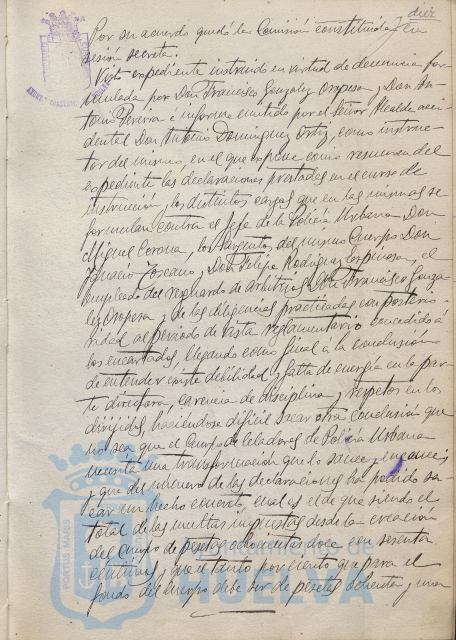 diez
Por su acuerdo quedó la Comisión constituida en
sesión secreta.
Visto expediente instruido en virtud de denuncia for-
mulada por Don Francisco Gonzalez Oropesa y Don An-
tonio Perera é informe emitido por el Señor Alcalde acci-
dental Don Antonio Dominguez Ortiz, como instruc-
tor del mismo, en el que expone como resumen del
expediente las declaraciones prestadas en el curso de
instrucción y los distintos cargos que en las mismas se
formulan contra el Jefe de la Policía Urbana Don
Miguel Corona, los Sargentos del mismo Cuerpo Don
Ignacio Toscano y Don Felipe Rodriguez Espinosa, el
empleado del resguardo de arbitrios Don Francisco Gonza-
lez Oropesa y de las diligencias practicadas con posterio-
ridad al período de vista reglamentario concedido á
los encartados, llegando como final á la conclusión
de entender existe debilidad y falta de energía en la par-
te directora, carencia de disciplina y respetos en los
dirigidos, haciéndose difícil sacar otra conclusión que
no sea que el Cuerpo de Celadores de Policía Urbana
necesita una transformación que lo sanee y encauce
y que del número de las declaraciones ha podido sa-
car un hecho concreto cual es el de que siendo el
total de las multas impuestas desde la creación
del Cuerpo de pesetas ochocientas doce con sesenta
centimos y que el tanto por ciento que para el
fondo del Cuerpo debe ser de pesetas ochenta y una
Ayuntamiento de
HUELVA
PORTUS MARIS